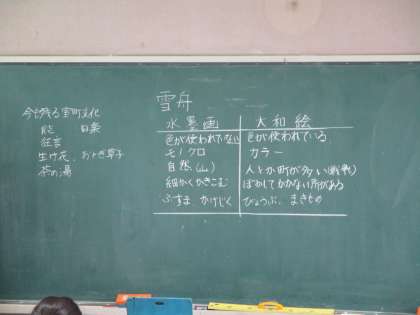 今も残る室町文化
能 日舞
狂言
生け花、おとぎ草子
茶の湯
雪舟
水墨画 大和絵
色が使われていない 色が使われている
モノクロ カラー
自然(山) 人とか町が多い
細かくかきこむ ぼかしてかかない所がある
ふすま かけじく びょうぶ、まきもの